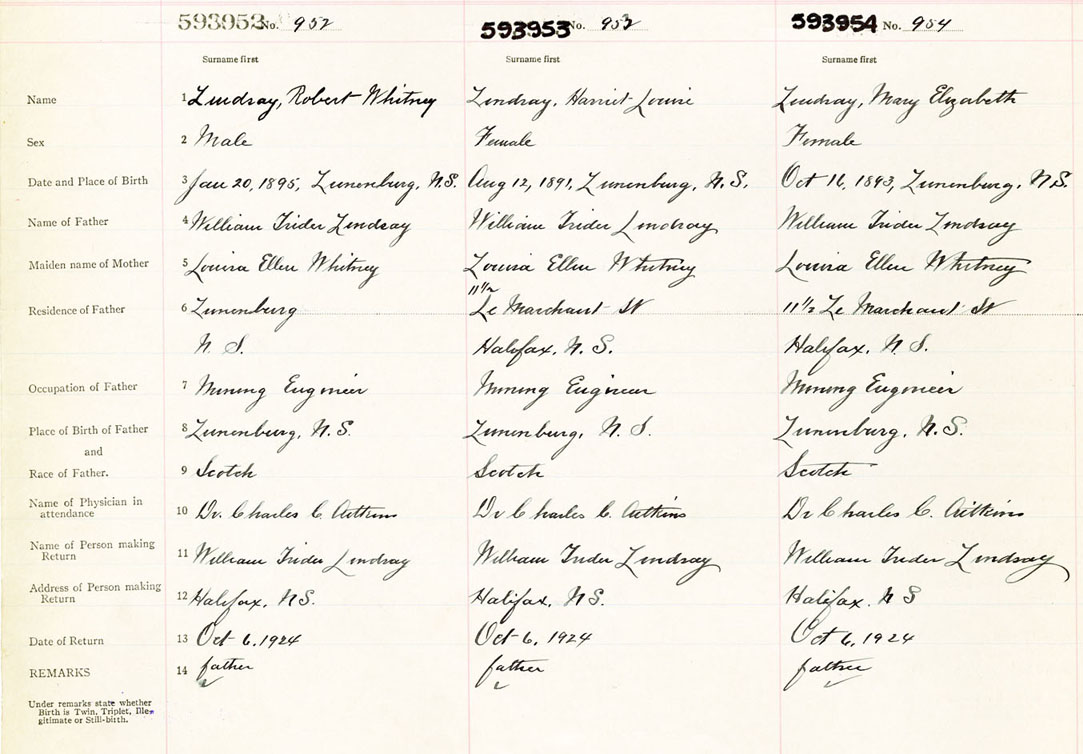 593952 No. 952 593953 No. 953 593954 No. 954
Surname first Surname first Surname first
Name 1 Lindsay, Robert Whitney Lindsay, Harriet Louise Lindsay, Mary Elizabeth
Sex 2 Male Female Female
Date and Place of Birth 3 Jan 20, 1895, Lunenburg, N.S. Aug 12, 1891, Lunenburg, N.S. Oct 16, 1893, Lunenburg, N.S.
Name of Father 4 William Lindsay William Lindsay William Lindsay
Maiden name of Mother 5 Louisa Ellen Whitney Louisa Ellen Whitney Louisa Ellen Whitney
11 1/2
Residence of Father 6 Lunenburg Le Marchant St 11 1/2 Le Marchant St
N.S. Halifax, N.S. Halifax, N.S.
Occupation of Father 7 Mining Engineer Mining Engineer Mining Engineer
Place of Birth of Father 8 Lunenburg, N.S. Lunenburg, N.S. Lunenburg, N.S.
and
Race of Father. 9 Scotch Scotch Scotch
Name of Physician in
attendance 10 Dr. Charles C. Aitkins Dr Charles C. Aitkins Dr Charles C. Aitkins
Name of Person making
Return 11 William Lindsay William Lindsay William Lindsay
Address of Person making
Return 12 Halifax, N.S. Halifax, N.S. Halifax, N.S
Date of Return 13 Oct 6, 1924 Oct 6, 1924 Oct 6, 1924
REMARKS 14 father father father
Under remarks state whether
Birth is Twin, Triplet, Ille-
gitimate or Still-birth.